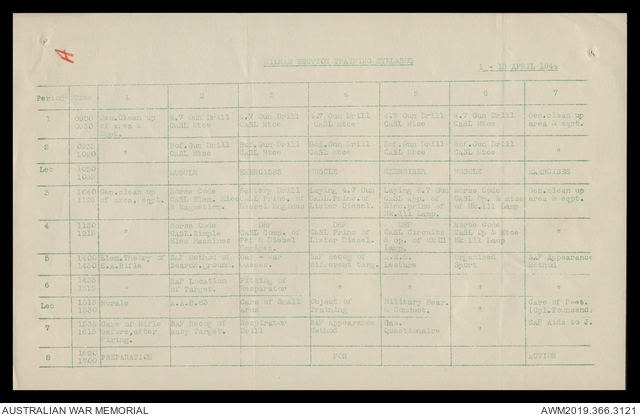 A
SECTION TRAINING SYLLABUS
1 - 15 APRIL 1944
Period Time 1 2 3 4 5 6 7
1 0930 Gen.Clean up 4.7 Gun Drill 4.7 Gun Drill 4.7 Gun Drill 4.7 Gun Drill 4.7 Gun Drill Gen.clean up
of area & CASL Mtce CASL Mtce CASL Mtce CASL Mtce CASL Mtce area & eqpt.
eqpt.
2 " Bof.Gun Drill Bof.Gun Drill Bof.Gun Drill Bof.Gun Drill Bof.Gun Drill "
CASL Mtce CASL Mtce CASL Mtce CASL Mtce CASL Mtce
Lec MUSCLE EXERCISES MUSCLE EXERCISES MUSCLE EXERCISES
3 Gen.clean up Morse Code Battery Drill Laying 4.7 Gun Laying 4.7 Gun Morse Code Gen.clean up
of area, eqpt CASL Elem. Elec CASL Princ. of CASL.Princ.of CASL App. of CASL Op & Mtce area & eqpt
& Magnetism. Engines Lister Diesel. Elec.princ of of Mk.III Lamp
Mk.III Lamp.
4 " Morse Code DBF DBF DBF Morse Code "
CASL.Simple CASL Comp. of CASL Princ of CASL Circuits CASL Op & Mtce
Elec Machines Pet & Diesel Lister Diesel. & op. of Mk III Mk III Lamp
Engines. Lamp.
5 1400 Elem.Theory of SAF Method of Gas - War SAF Recog of Organised SAF Appearance
1430 S.A.Rifle Search.ground. Gasses. different targ. Lecture Sport Method
6 1435 " SAF Location Fitting of " " " "
1515 of Target. Respirator
Lec 1515 Morale A.A.B.83 Care of Small Object of Military Bear. " Care of Feet.
1530 Arms Training & Conduct. (Cpl.Townsend)
7 1535 Care of Rifle SAF Recog of Respirator SAF Appearance Gas. " SAF Aids to J.
1615 before,after easy Target. Drill Method Questionaire
Firing.
8 1620 PREPARATION FOR ACTION
1700
AUSTRALIAN WAR MEMORIAL
AWM2019.366.3121